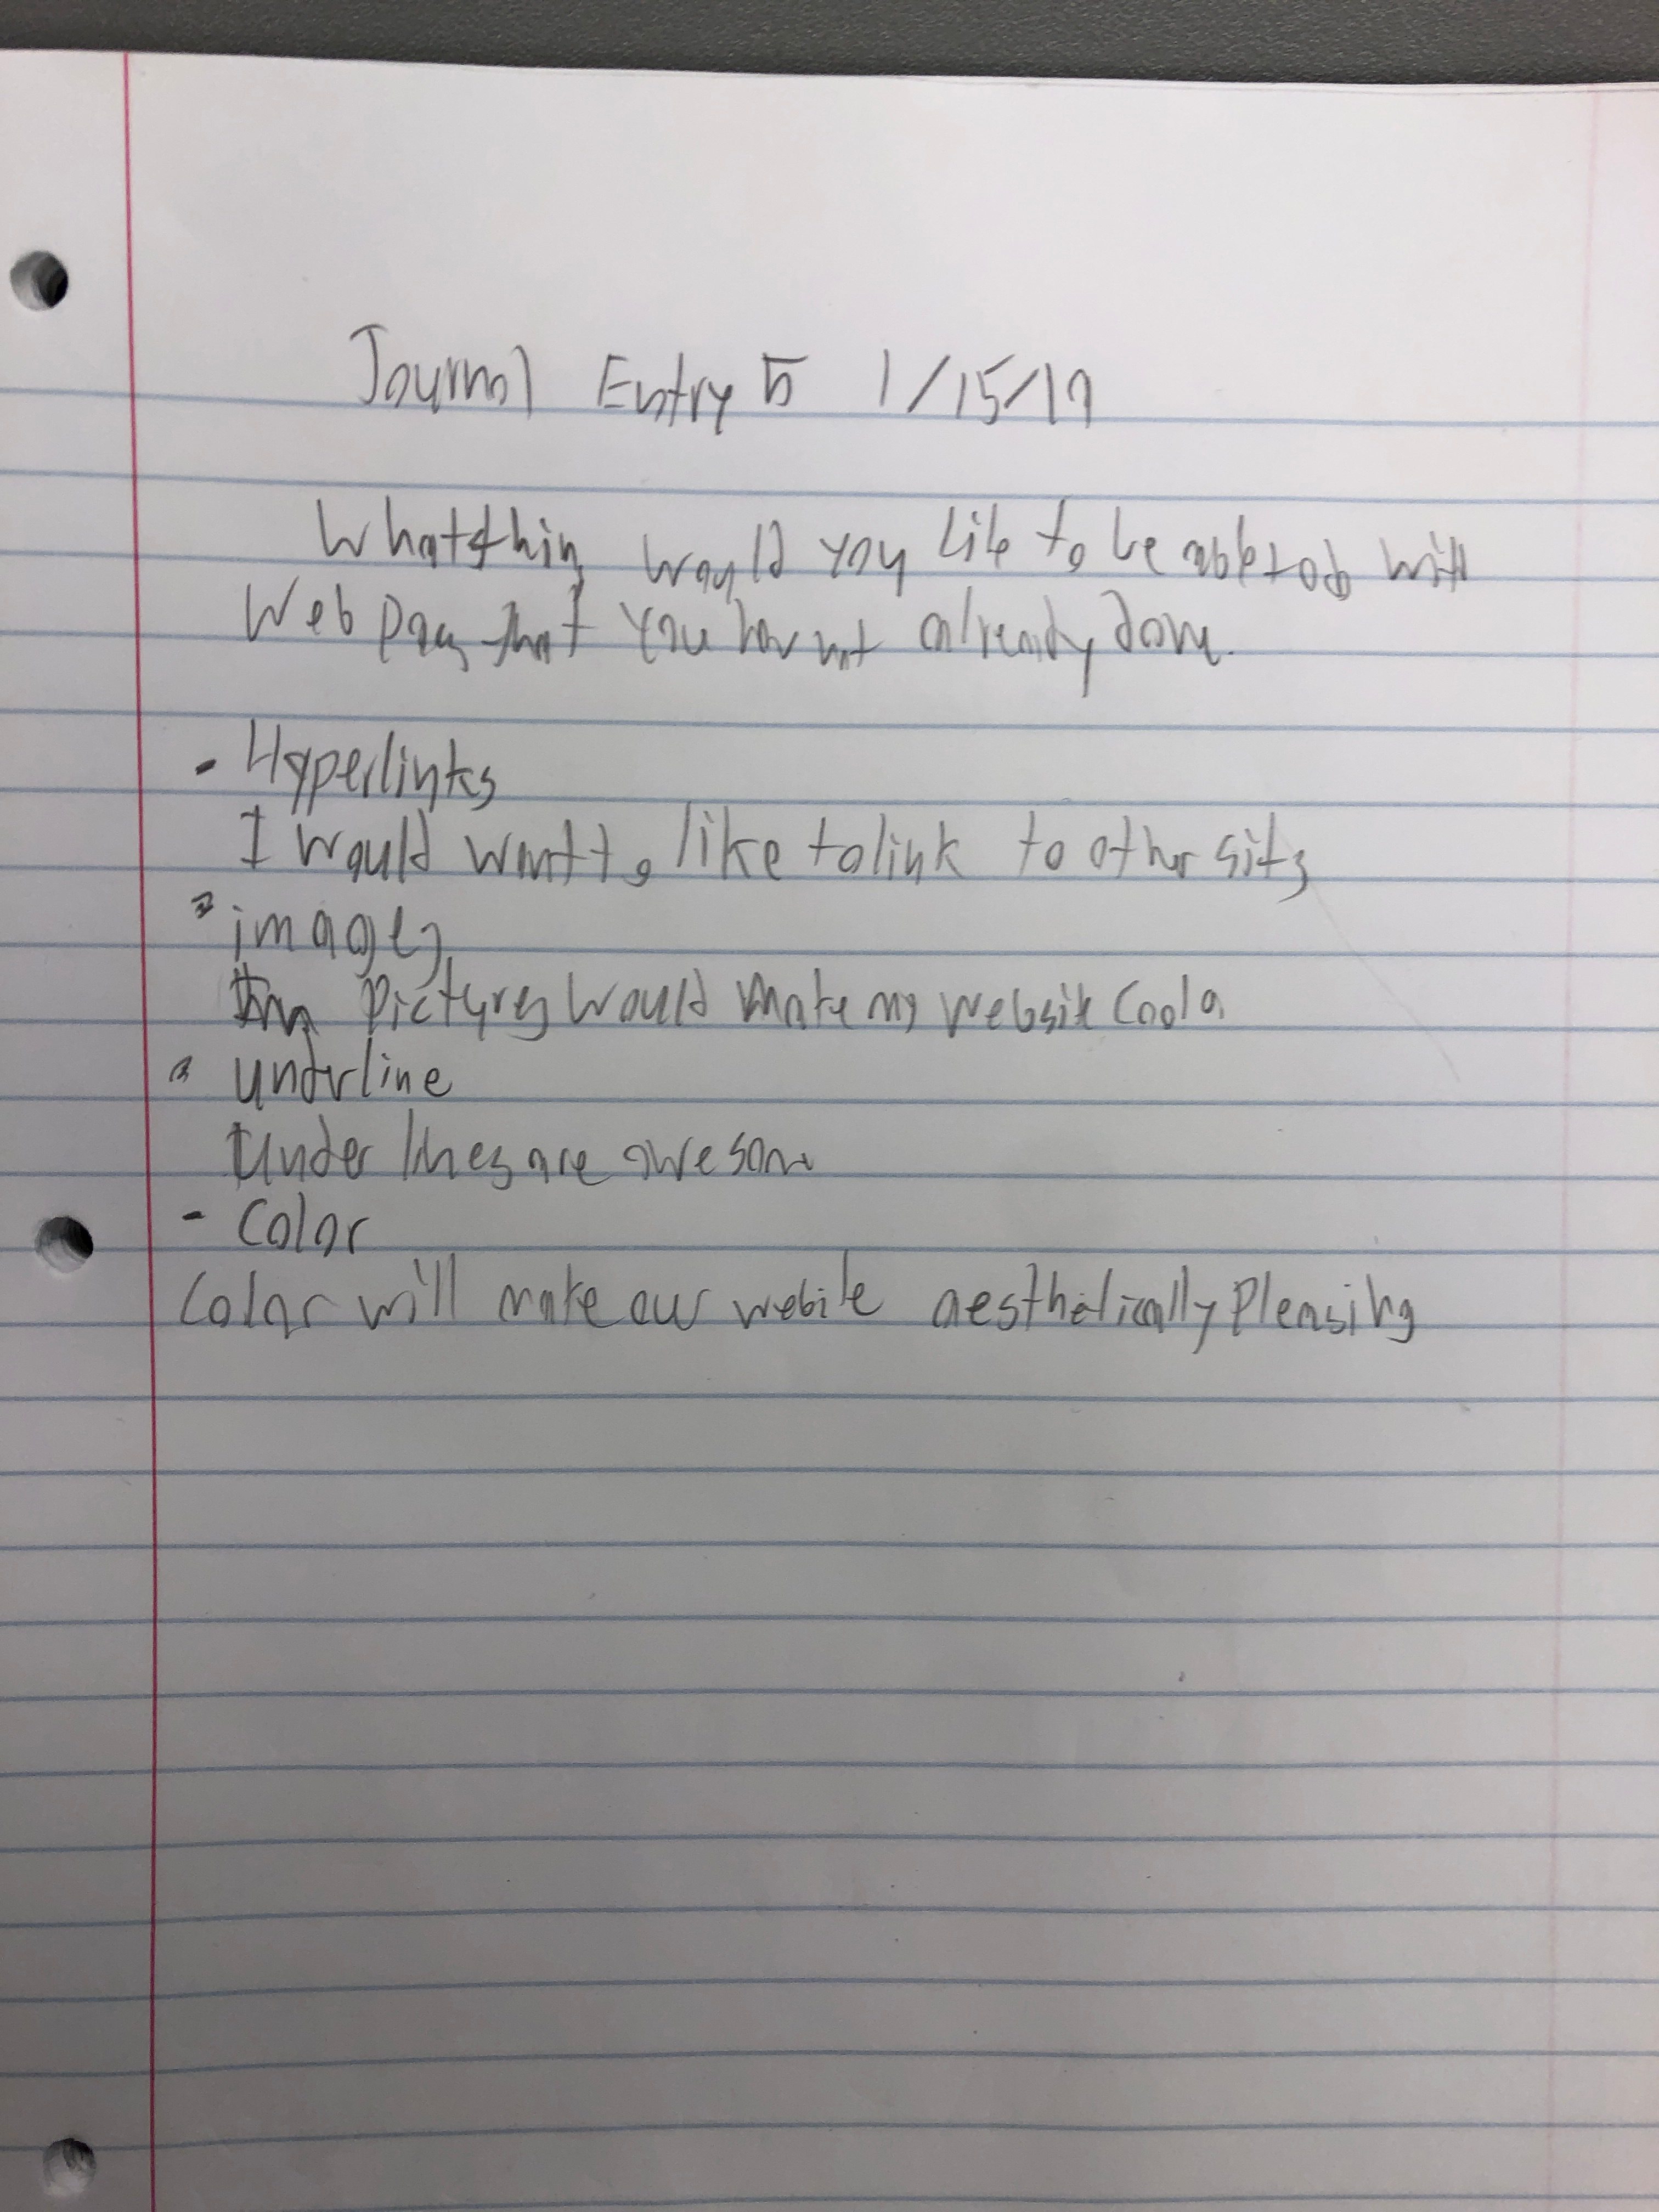 Journal Entry 5 1/15/19
What thing would you like to be able to do with
Web pages that you have not already done.
- Hyperlinks
I would want to like to link to other sites
- images
Pictures would make my website cool
- underline
Under lines are awesome
- Color
Color will make our webite aesthetically pleasing